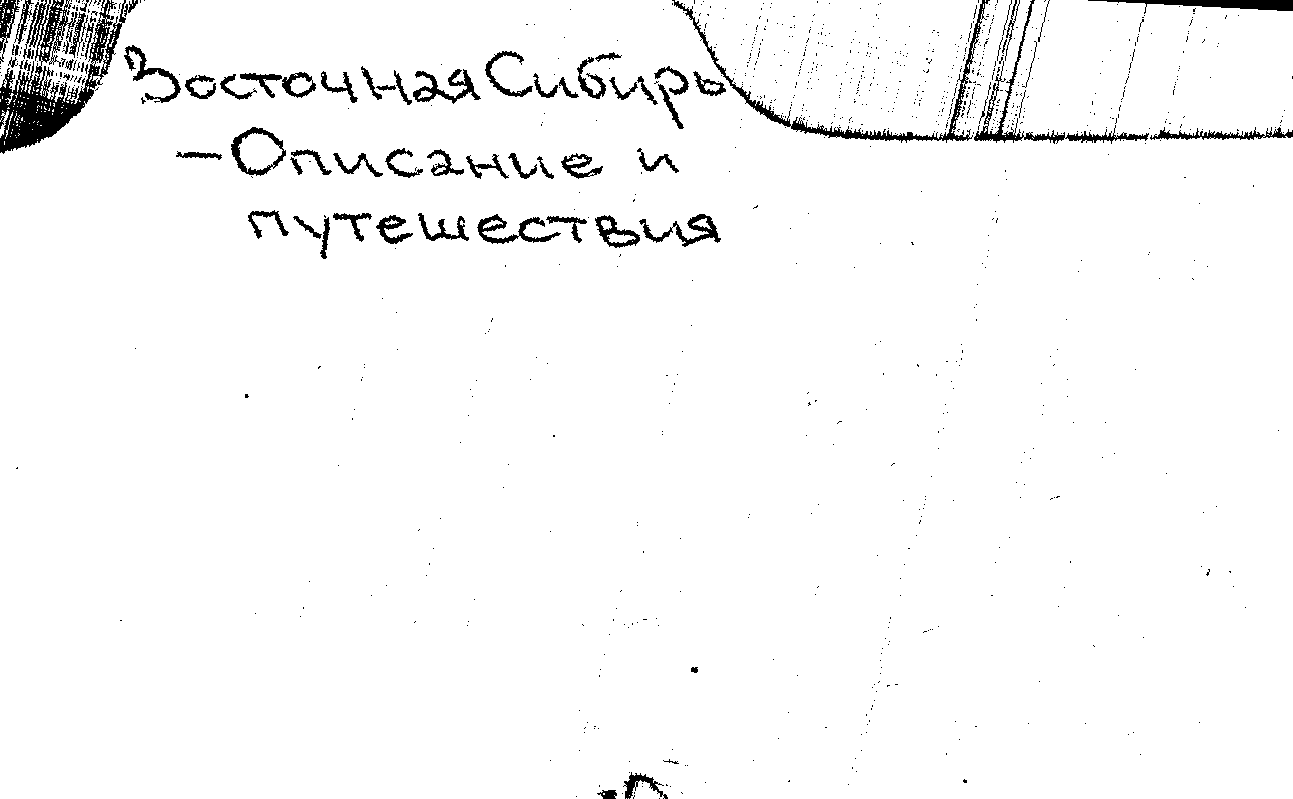 Восточная Сибирь
— Описание и
путешествия